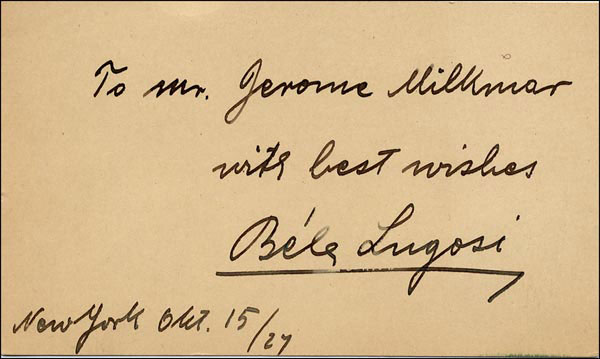 To mr. Jerome Milkmar
with best wishes
Béla Lugosi
New York Okt. 15/27